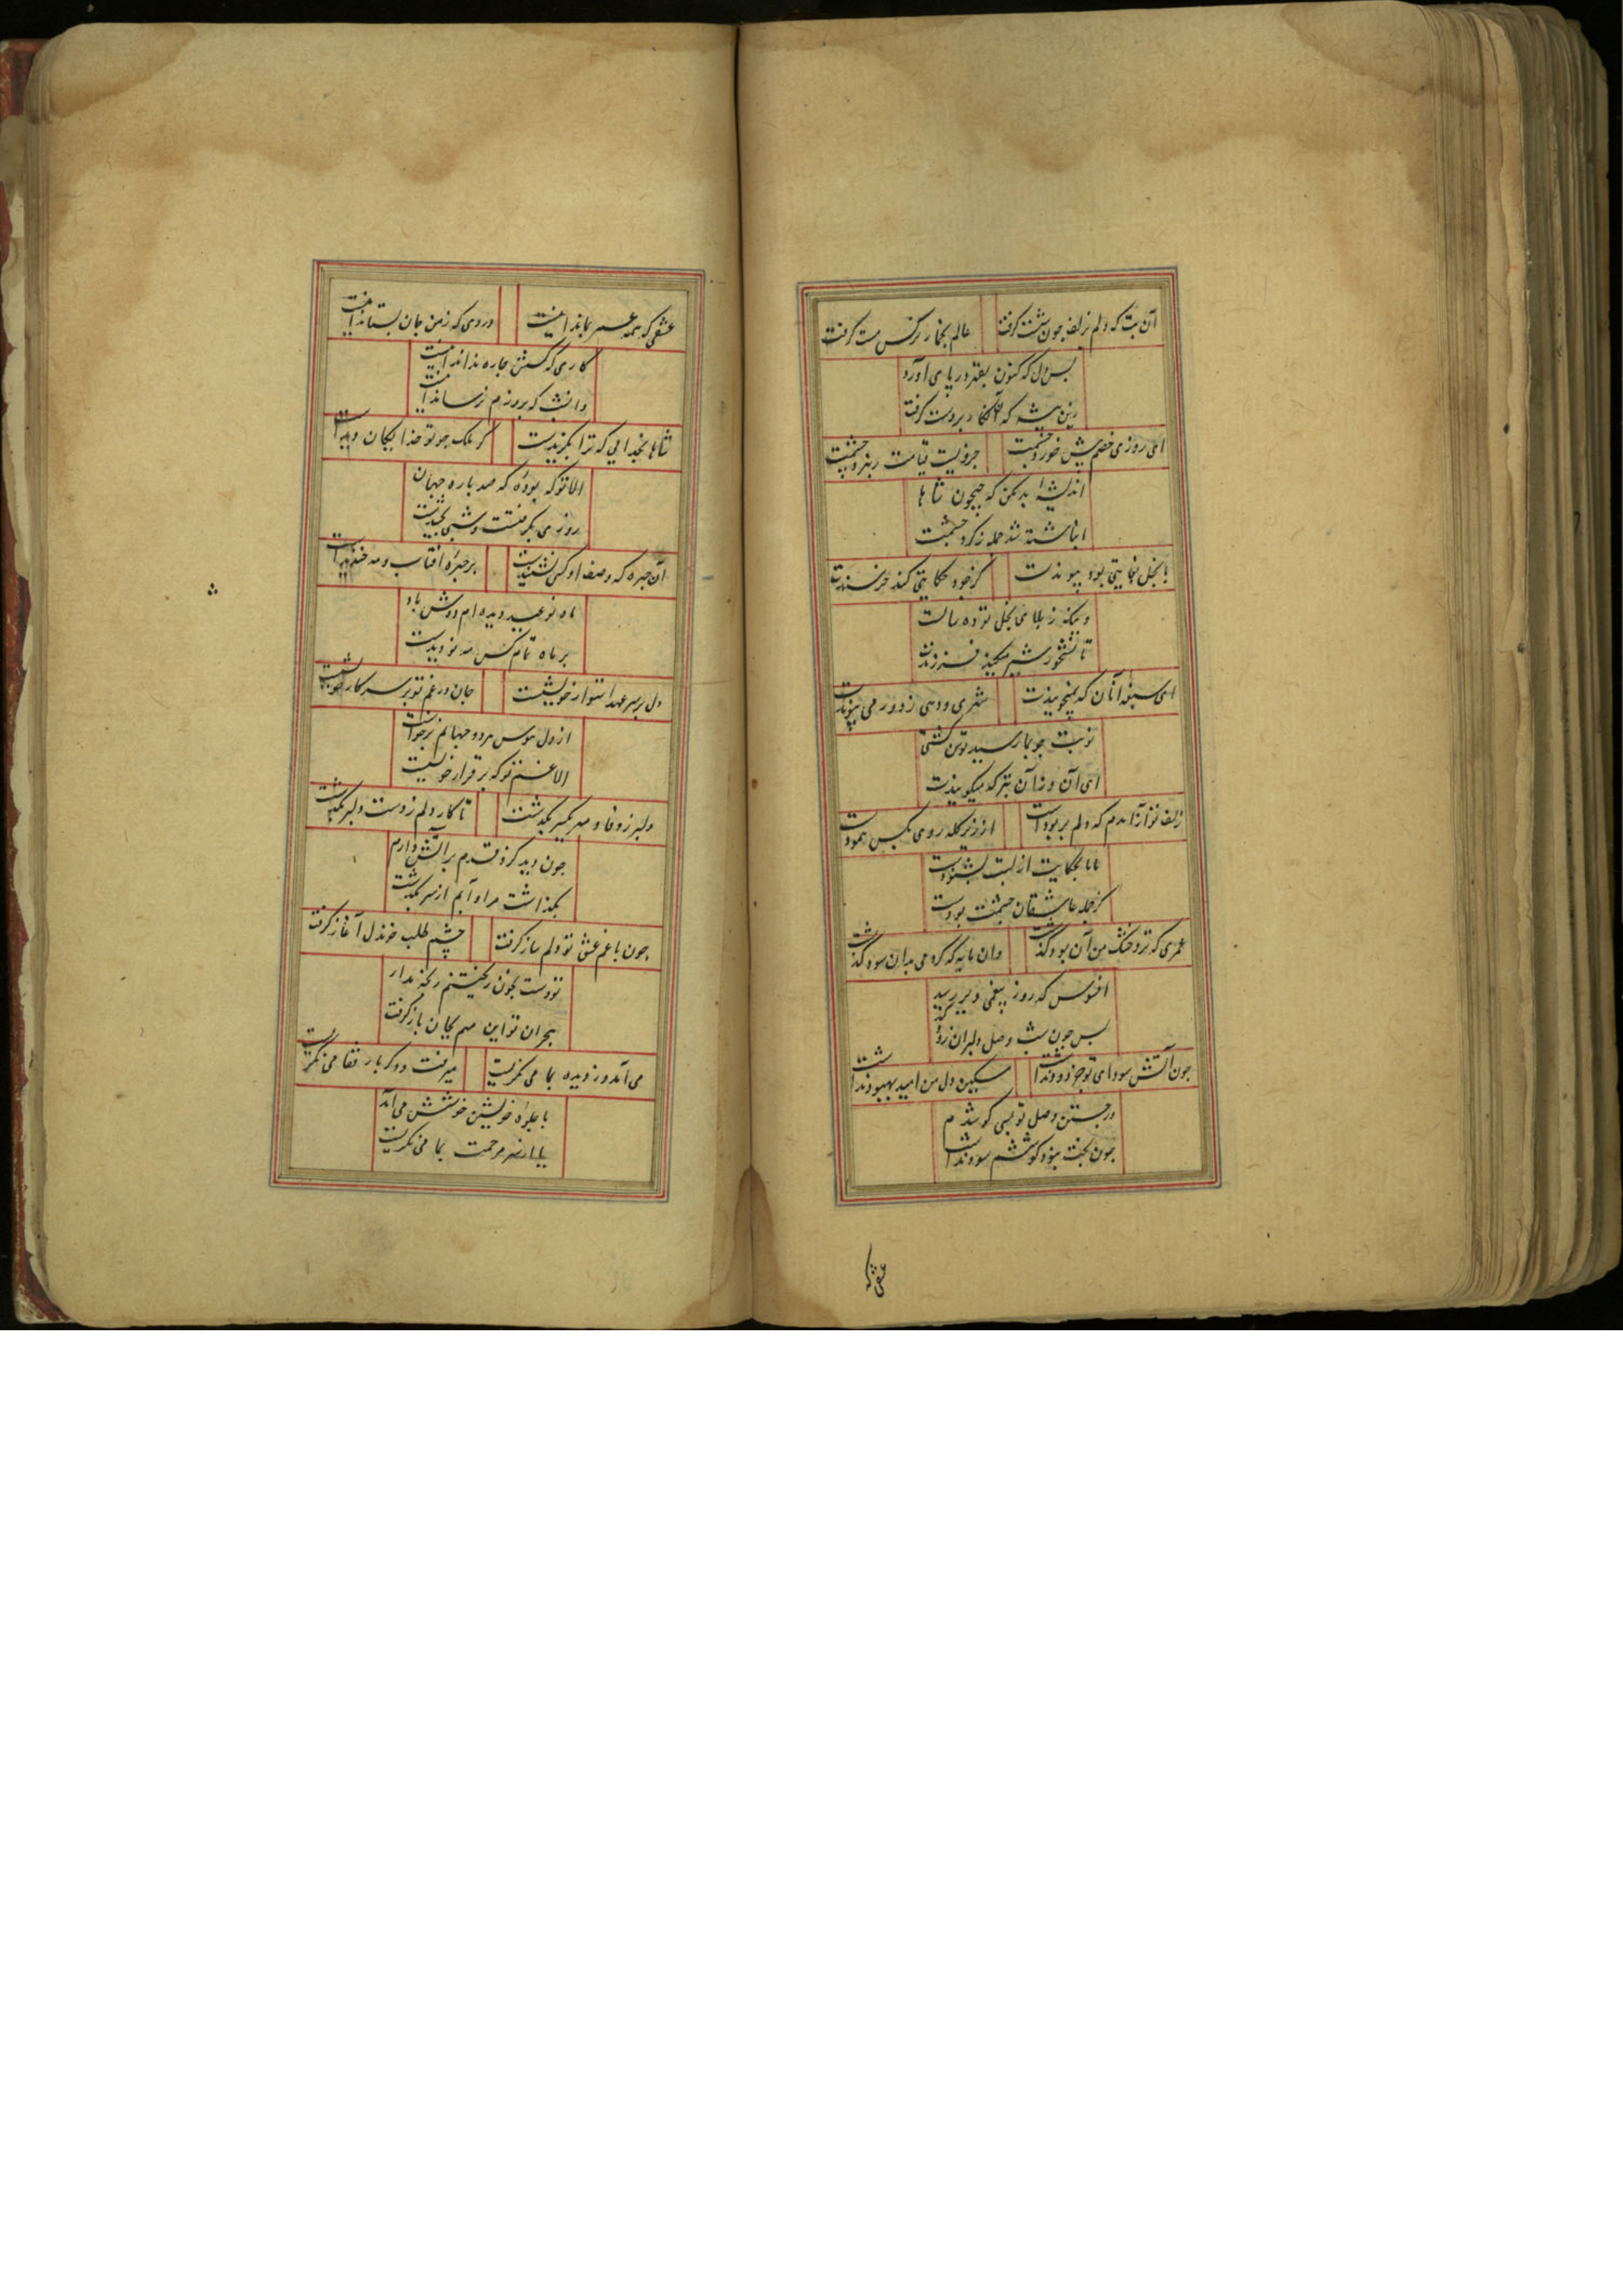 آن بت که دلم زلف چون شست گرفت
عالم بخمار نرکس مست گرفت
بس دل که کنون بقهر در پای آورد
زین شیوه که آن نکار بر دست گرفت
ای روزی خصم پیش خورد حشمت
جز وقت قیامت
اندیشه بد مکن که جیحون شاها
انباشته شد جمله ز کرد حشمت
با بخل بغایتی بود پیوندت
کز خود بحکایتی کند خرسندت
وینکه ز بلای بخل تو ده سالست
تا نشخور شیر میکند فرزندت
ای سغبه آنان که نمیجویندت
شهری و دهی ز دور می پویندت
نوبت چو بما رسید توبت کشتی
ای آن وز آن بتر که میکویندت
زلف تو از آن دم که دلم بربودست
از زیر کله روی بکس ننمودست
مانا بحکایت از لبت بشنودست
کز جمله عاشقان حشمت بودست
عمری که ترو خشک من آن بود گذشت
وان مایه که کردمی بدان سود گذشت
افسوس که روز بیغمی دیر رسید
بس چون شب وصل دلبران زود گذشت
جون آتش سودای تو جز دود نداشت
مسکین دل من امید بهبود نداشت
در جستن وصل تو بسی کوشیدم
جون بخت نبود کوششم سود نداشت
عشقی که
عشقی که همه عمر بماند اینست
دردی که ز من جان بستاند اینست
کاری که کسش چاره نداند اینست
وان شب که بروزم نرساند اینست
شاها بخدایی که ترا بکزیدست
کر ملک چو تو خدایکان دیدست
الا تو که بوده که صد باره جهان
روزی بکرفتست و شبی بخشیدست
آن چهره که وصف او کسی نشنیدست
بر چهره آفتاب و مه خندیدست
ماه نو عید دیده ام دوش باو
بر ماه تمام کس مه نو دیدست
دل بر سر عهد استوار خویشست
جان در غم تو بر سر کار خویشست
از دل هوس هر دو جهانم برخاست
الا غم تو که بر قرار خویشست
دلبر ز وفا و مهر یکسر بگذشت
تا کار دلم ز دست دلبر بگذشت
جون دید کزو قدم بر آتش دارم
بگذاشت مرا و آبم از سر بگذشت
جون با غم عشق تو دلم ساز گرفت
چشمم طلب خون دل آغاز گرفت
تو دست بخون ریختنم رنجه مدار
هجران تو این مهم بجان باز گرفت
می آمد و دزدیده بما می نکریست
میرفت و دکر بار قفا می نکریست
با جلوه خویشتن خوشش می آمد
یا از سر مرحمت بما می نکریست